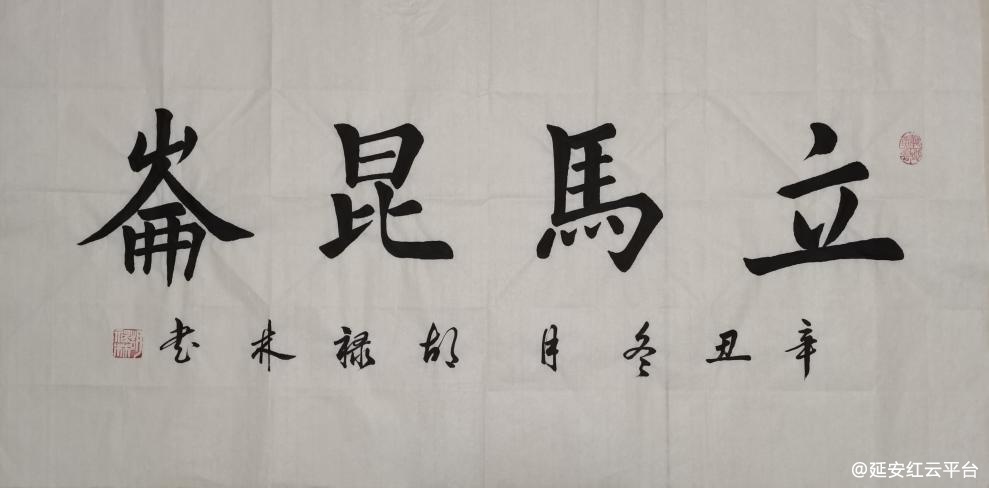 立馬昆崙
辛丑冬月胡禄林书
@延安红云平台